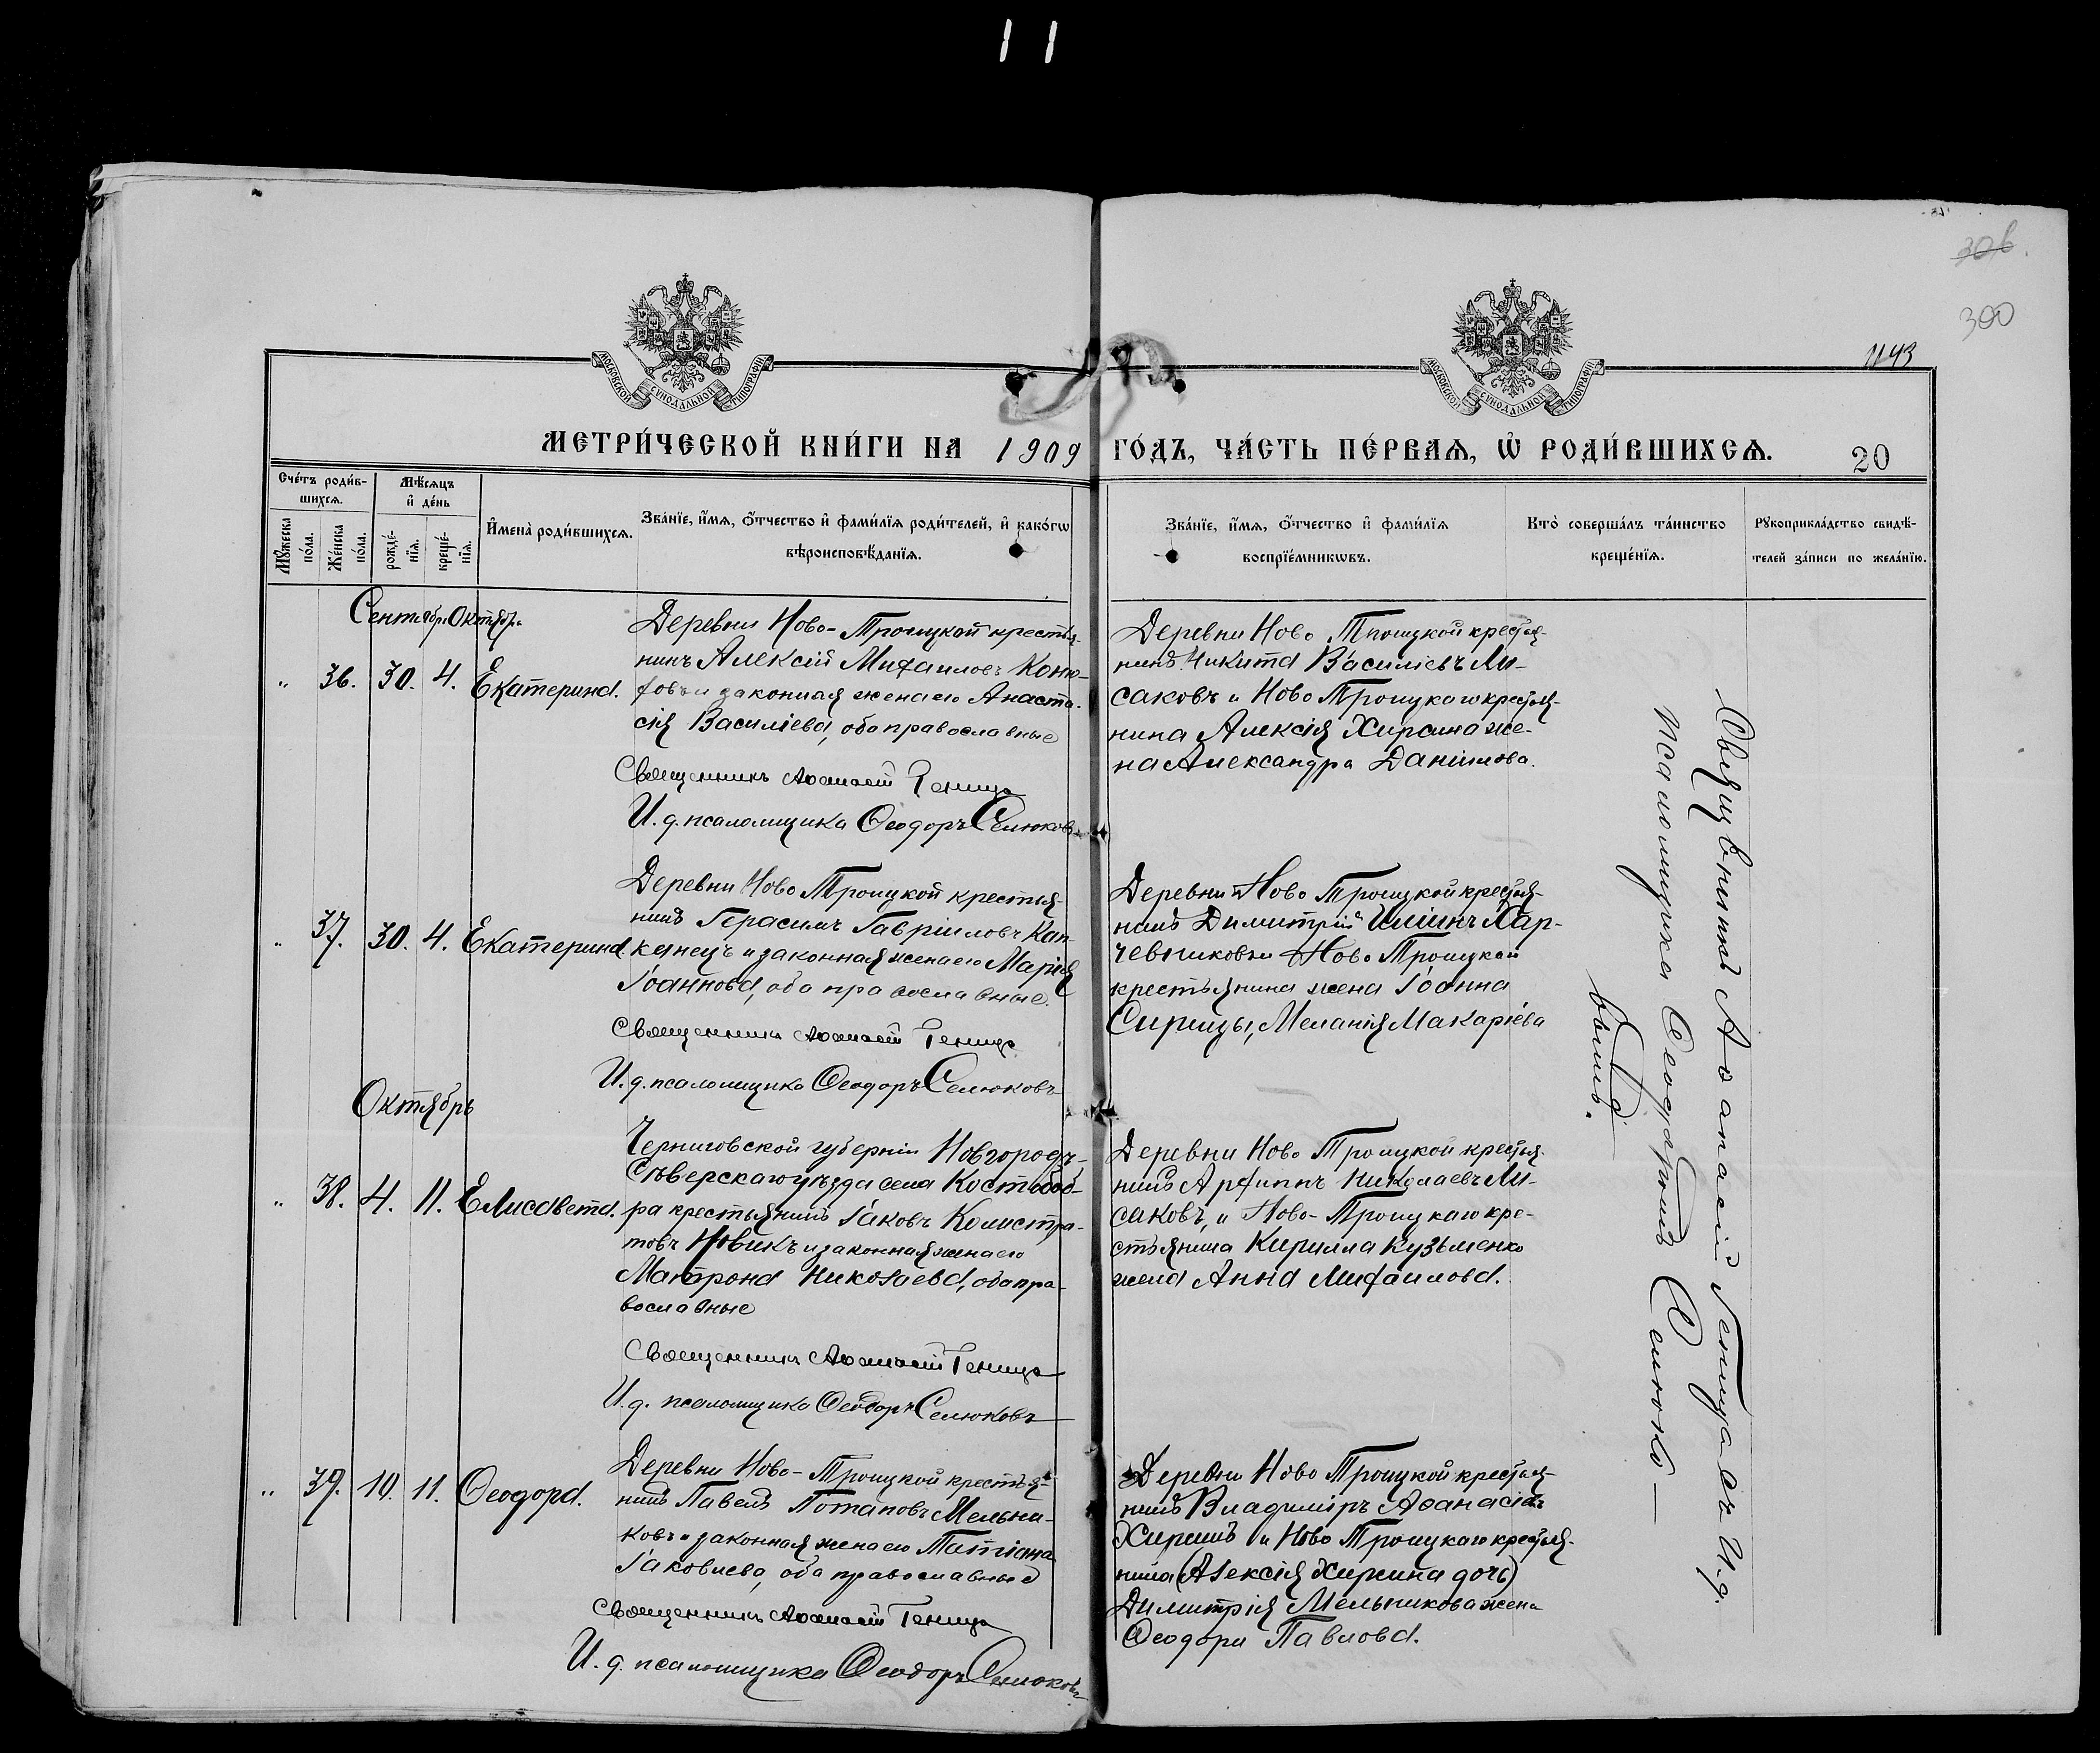 11
30б.
300
1143
МОСКОВСКОЙ СѴНОДАЛЬНОЙ ТИПОГРАФІИ
МОСКОВСКОЙ СѴНОДАЛЬНОЙ ТИПОГРАФІИ
МЕТРИ́ЧЕСКОЙ КНИ́ГИ НА 1909 ГО́ДЪ, ЧА́СТЬ ПЕ́РВАЯ, Ѡ҆ РОДИ́ВШИХСЯ.
20
Сче́тъ роди́в-
шихся.
Мѣ́сяцъ
и҆ де́нь
Мꙋ́жеска
по́ла.
Же́нска
по́ла.
рожде́-
нїя.
креще́-
нїя.
И҆мена̀ роди́вшихся.
Зва́нїе, и҆́мя, ѻ҆́тчество и҆ фами́лїя роди́телей, и҆ како́гѡ
вѣроисповѣ́данїя.
Зва́нїе, и҆́мя, ѻ҆́тчество и҆ фами́лїя
воспрїе́мникѡвъ.
Кто̀ соверша́лъ та́инство
креще́нїя.
Рꙋкоприкла́дство свидѣ́-
телей за́писи по жела́нїю.
Сентябр. Октябр.
" 36. 30. 4. Екатерина.
Деревни Ново-Троицкой крестья-
нинъ Алексій Михаиловъ Коню-
ховъ и законная жена его Анаста-
сія Василіева, оба православные
Священникъ Аѳанасій Геница
И. д. псаломщика Ѳеодоръ Селюковъ
Деревни Ново Троицкой крестья-
нинъ Никита Василіевъ Ли-
саковъ и Ново Троицкаго крестья-
нина Алексія Хирсина же-
на Александра Даніилова.
" 37. 30. 4. Екатерина.
Деревни Ново Троицкой крестья-
нинъ Герасимъ Гавріиловъ Кап-
 и законная жена его Марія
Іоаннова, оба православные.
Священникъ Аѳанасій Геница
И. д. псаломщика Ѳеодоръ Селюковъ
Деревни Ново Троицкой крестья-
нинъ Димитрій Иліинъ Хар-
чевниковъ и Ново Троицкой
крестьянина жена Іоанна
Сирицы, Меланія Макаріева
Октябрь
" 38. 4. 11. Елисавета.
Черниговской губерніи Новгородъ-
Сѣверскаго уѣзда села Костобоб-
ра крестьянинъ Іаковъ Комистра-
товъ Новикъ и законная жена его
Матрона Николаева, оба пра-
вославные
Священникъ Аѳанасій Геница
И. д. псаломщика Ѳеодоръ Селюковъ
Деревни Ново Троицкой крестья-
нинъ Архиппъ Николаевъ Ли-
саковъ, и Ново-Троицкаго кре-
стьянина Кирилла Кузьменко
жена Анна Михаилова.
" 39. 10. 11. Ѳеодора.
Деревни Ново-Троицкой крестья-
нинъ Павелъ Потаповъ Мельни-
ковъ и законная жена его Татіана
Іаковлева, оба православные
Священникъ Аѳанасій Геница
И. д. псаломщика Ѳеодоръ Селюковъ
Деревни Ново Троицкой крестья-
нинъ Владиміръ Аѳанасіевъ
Хирсинъ и Ново Троицкаго крестья-
нина (Алексія Хирсина дочь)
Димитрія Мельникова жена
Ѳеодора Павлова.
Священникъ Аѳанасій Геница съ И. д.
псаломщика Ѳеодоромъ Селюко-
вымъ.